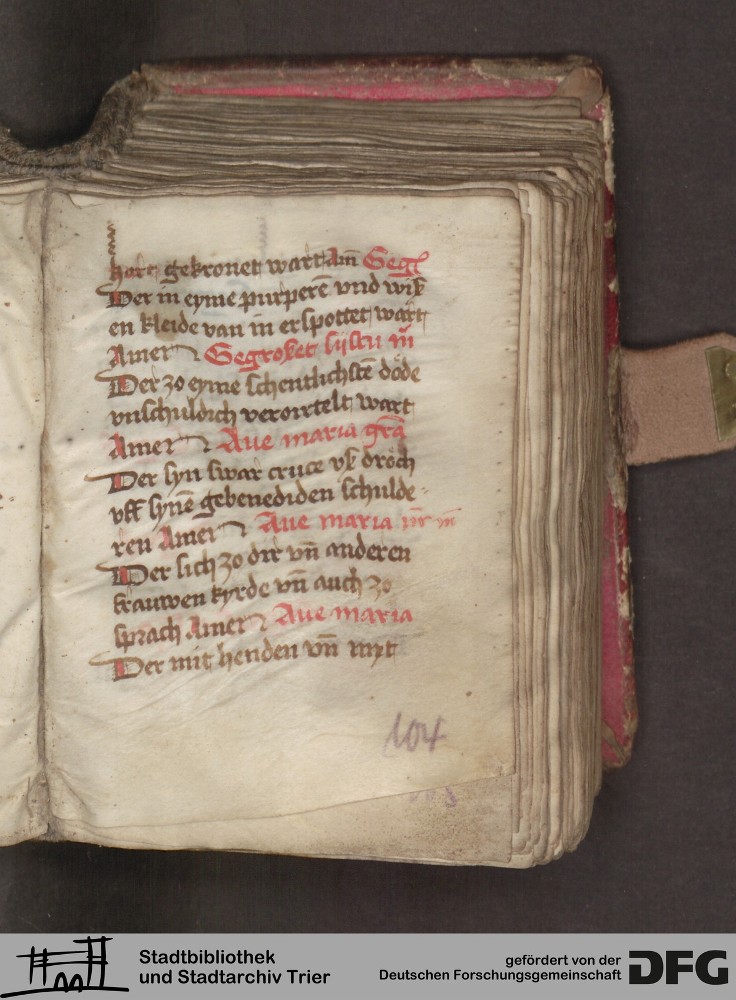 gekronet wart Am̄ Gegr̄
Der in eyme purperē vnd wiſſ
en kleide van in erſpottet wart
Amen Gegroſet ſiſtu m̄
Der zo eyme ſchentlichſtē dode
vnſchuldich verortelt wart
Amen Aue maria gr̄a
Der ſyn ſwar cruce vſ dröch
vff ſynē gebenediden ſchulde
ren Amen Aue maria
Der ſich zo dir vn̄ anderen
frauwen kyrde vn̄ auch zo
ſprach Amen Aue maria
Der mit henden vn̄ myt
104
Stadtbibliothek
und Stadtarchiv Trier
gefördert von der
Deutschen Forschungsgemeinschaft
DFG